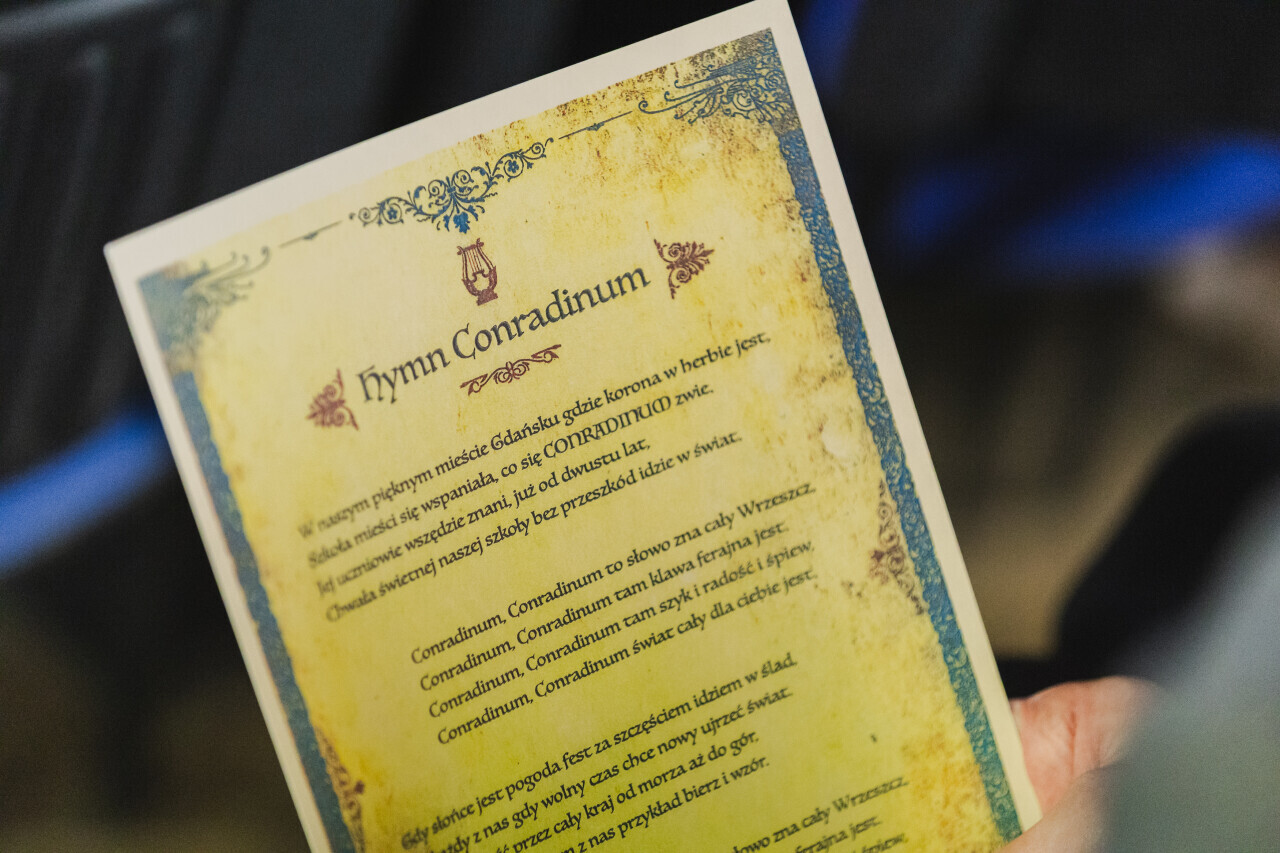 Hymn Conradinum
W naszym pięknym mieście Gdańsku gdzie korona w herbie jest,
Szkoła mieści się wspaniała, co się CONRADINUM zwie.
Jej uczniowie wszędzie znani, już od dwustu lat,
Chwała świetnej naszej szkoły bez przeszkód idzie w świat.
Conradinum, Conradinum to słowo zna cały Wrzeszcz,
Conradinum, Conradinum tam klawa ferajna jest.
Conradinum, Conradinum tam szyk i radość i śpiew,
Conradinum, Conradinum świat cały dla ciebie jest.
Gdy słońce jest pogoda fest za szczęściem idziem w ślad,
z nas gdy wolny czas chce nowy ujrzeć świat.
przez cały kraj od morza aż do gór,
z nas przykład bierz i wzór.
słowo zna cały Wrzeszcz,
ferajna jest.